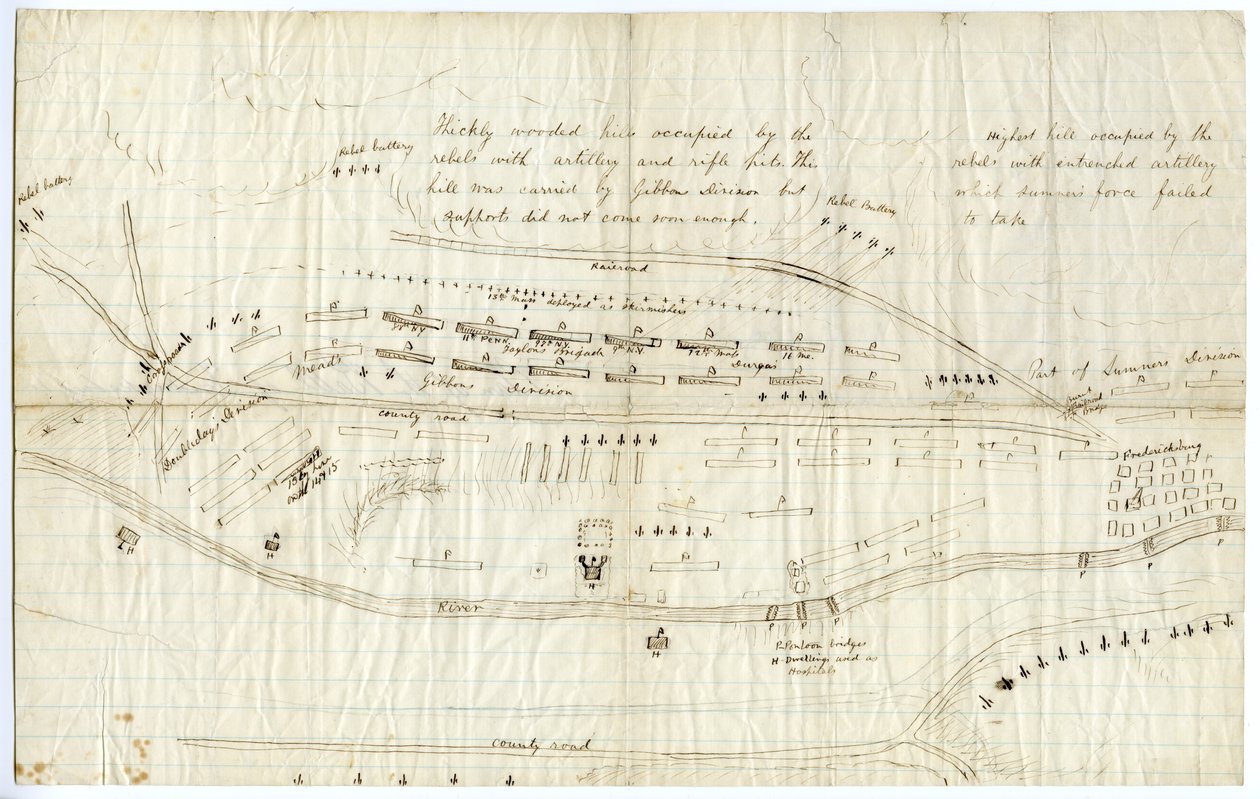 Thickly wooded hills occupied by the
rebels with artillery and rifle pits. This
hill was carried by Gibbons Division but
supports did not come soon enough.
Highest hill occupied by the
rebels with entrenched artillery
which Sumners force failed
to take
Rebel battery
Rebel battery
Rebel Battery
Railroad
13th Mass deployed as skirmishers
88th N.Y.
11th Penn.
97th N.Y.
9th N.Y.
12th Mass
16 me.
Taylors Brigade
Durgas
Meads
Gibbons Division
Part of Sumners Division
Burnt
Railroad
Bridge
County road
Doubledays Division
Fredericksburg
H
H
H
River
P
P
P
P
P
P
H
P-Pontoon bridges
H-Dwellings used as
Hospitals
County road